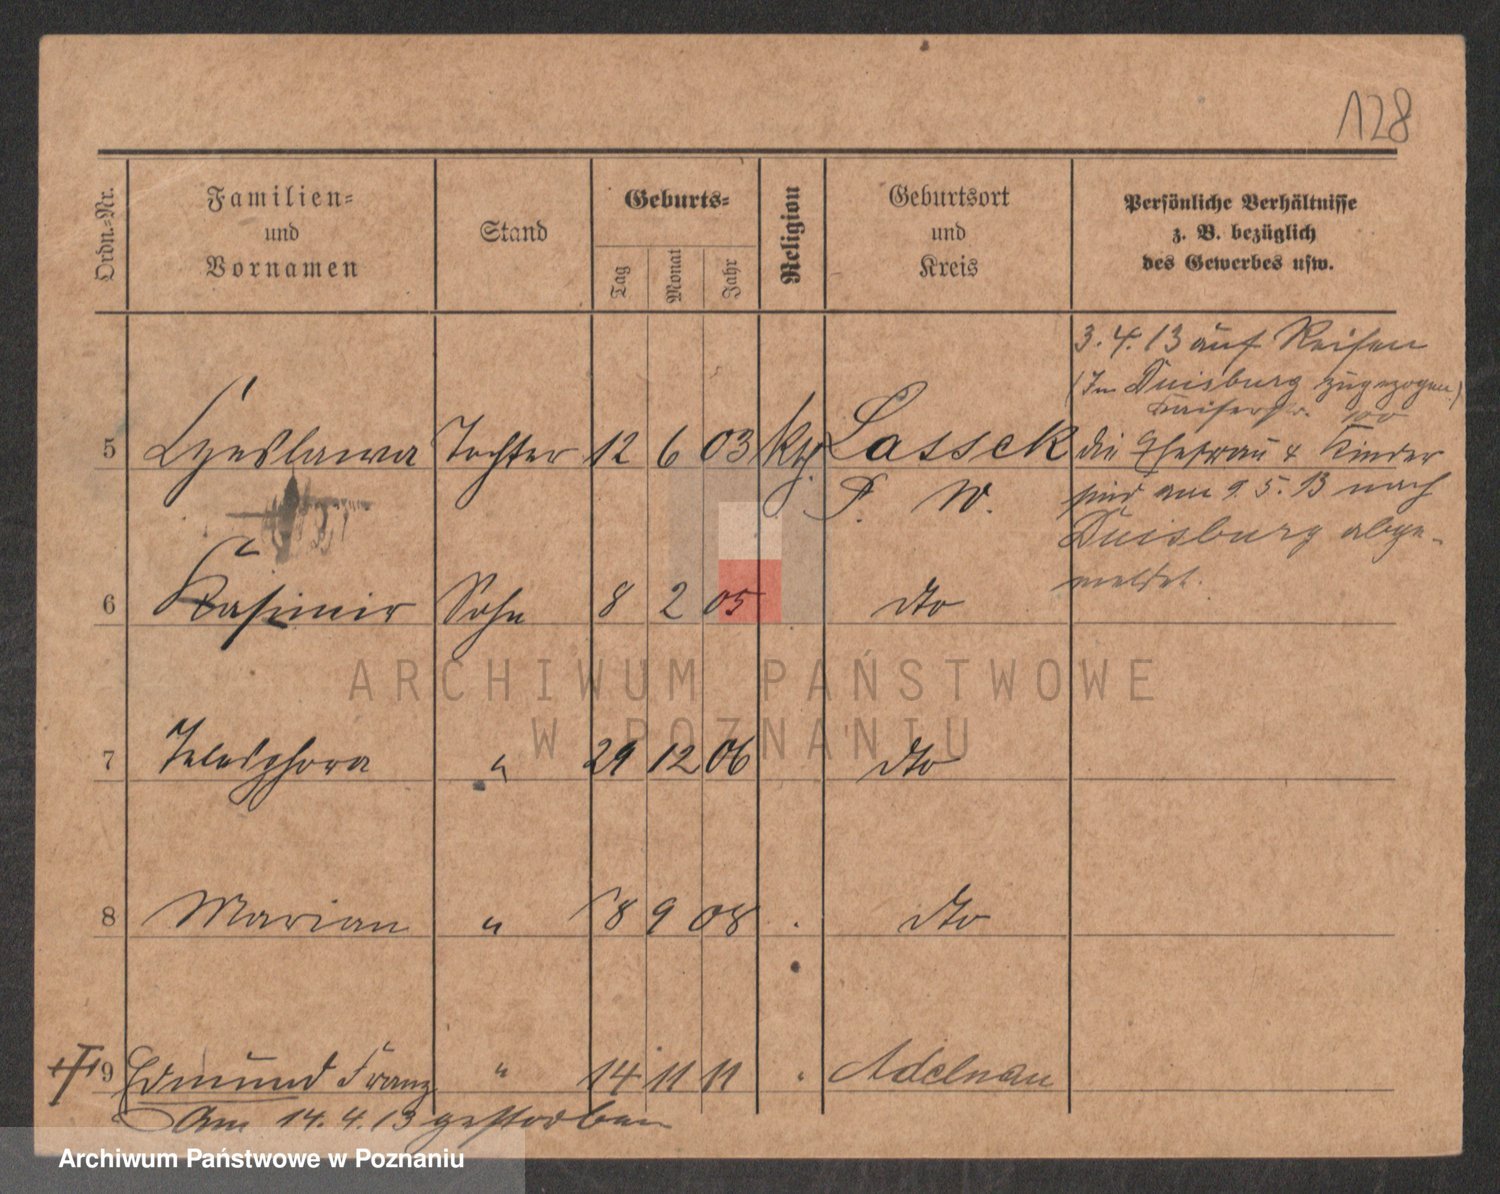 128
Ordn.-Nr.
Familien-
und
Vornamen
Stand
Geburts-
Tag
Monat
Jahr
Religion
Geburtsort
und
Kreis
Persönliche Verhältnisse
z. B. bezüglich
des Gewerbes usw.
3. 4. 13 auf Reisen
(In Duisburg zugezogen)
Kaiserstr. 100
5 Czeslawa Tochter 12 6 03 kth Lassek
die Ehefrau & Kinder
P. W.
sind am 9. 5. 13 nach
Duisburg abge-
meldet.
6 Kasimir Sohn 8 2 05 dto
7 Telesphora " 29 12 06 dto
8 Marian " 18 9 08 dto
9 Edmund Franz " 14 11 11 " Adelnau
Am 14. 4. 13 gestorben
ARCHIWUM PAŃSTWOWE
W POZNANIU
Archiwum Państwowe w Poznaniu